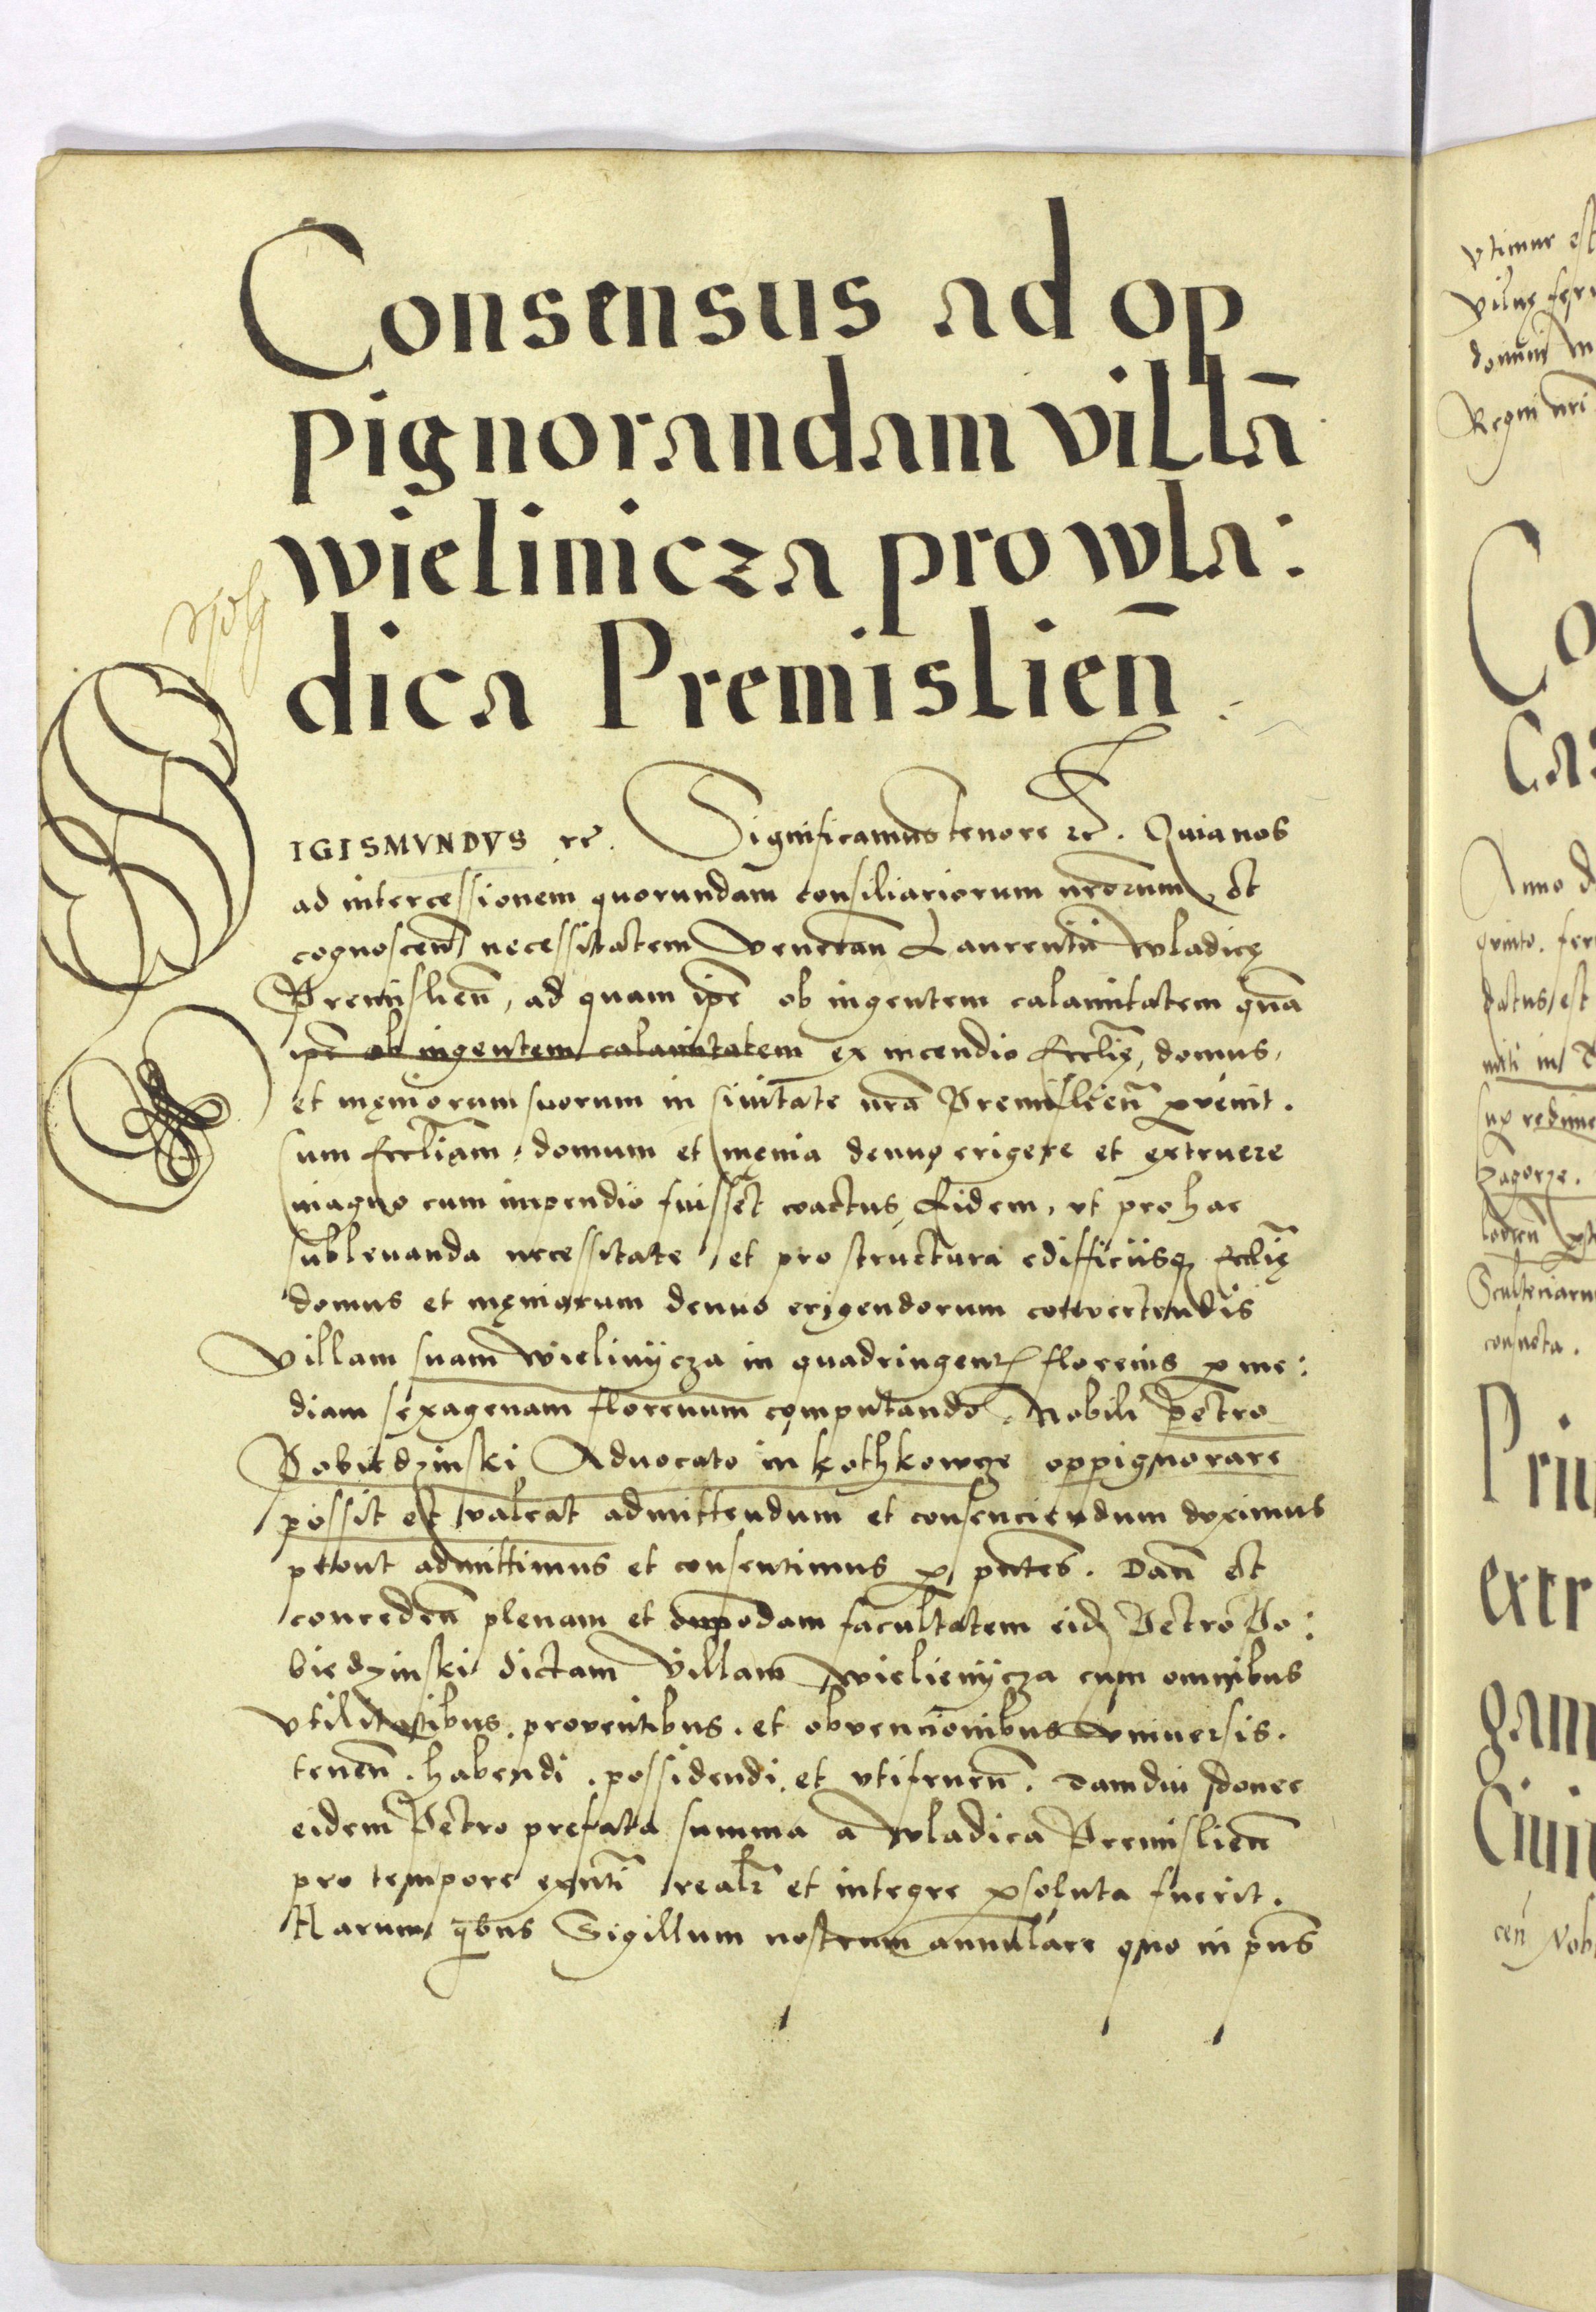 Consensus ad op
pignorandam villā
wielinicza pro wla:
dica Premislien̄
SIGISMVNDVS rc. Significamus tenore rc. Quia nos
ad intercessionem quorundam consiliariorum nr̄orum, et
cognoscen̄ necessitatem veneran̄ Laurentii wladicę
Premislien̄, ad quam ip̄e ob ingentem calamitatem quā
ip̄e ob ingentem calamitatem ex incendio Eccl̄ię, domus,
et męniorum suorum in civitate nr̄a Premislien̄ p̱venit.
cum Eccl̄iam, domum et męnia denuo erigere et extruere
magno cum impendio fuisset coactus, Eidem, vt pro hac
sublevanda necessitate, et pro structura edifficiisq̨ Eccl̄ię
domus et męniorum denuo erigendorum convertendis
villam suam wielinÿcza in quadringent̄ florenis p̱ me:
diam sexagenam florenum computando. Nobili Petro
Pobiedzinski Advocato in kothkowcze oppignorare
possit et valeat admittendum et consenciendum duximus
p̱tout admittimus et consentimus p̱ pn̄tes. Dan̄ et
conceden̄ plenam et om̄podam facultatem eid̨ Petro Po:
biedzinski dictam villam wielienÿcza cum omnibus
vtilitatibus, proventibus, et obvencionibus vniversis.
tenen̄. habendi. possidendi, et vtifruen̄. Tamdiu donec
eidem Petro prefata summa a wladica Premislien̄
pro tempore exn̄ti realr̄ et integre p̱soluta fuerit.
Harum qūbus Sigillum nostrum annulare quo in pn̄s
vtimur est
domini
Regni nr̄i
Co
Anno d
quinto. fer
datus est
sup̱ redime
zagorze.
consueta.
Priu
exer
gam
Ciui
cen̄ Nob